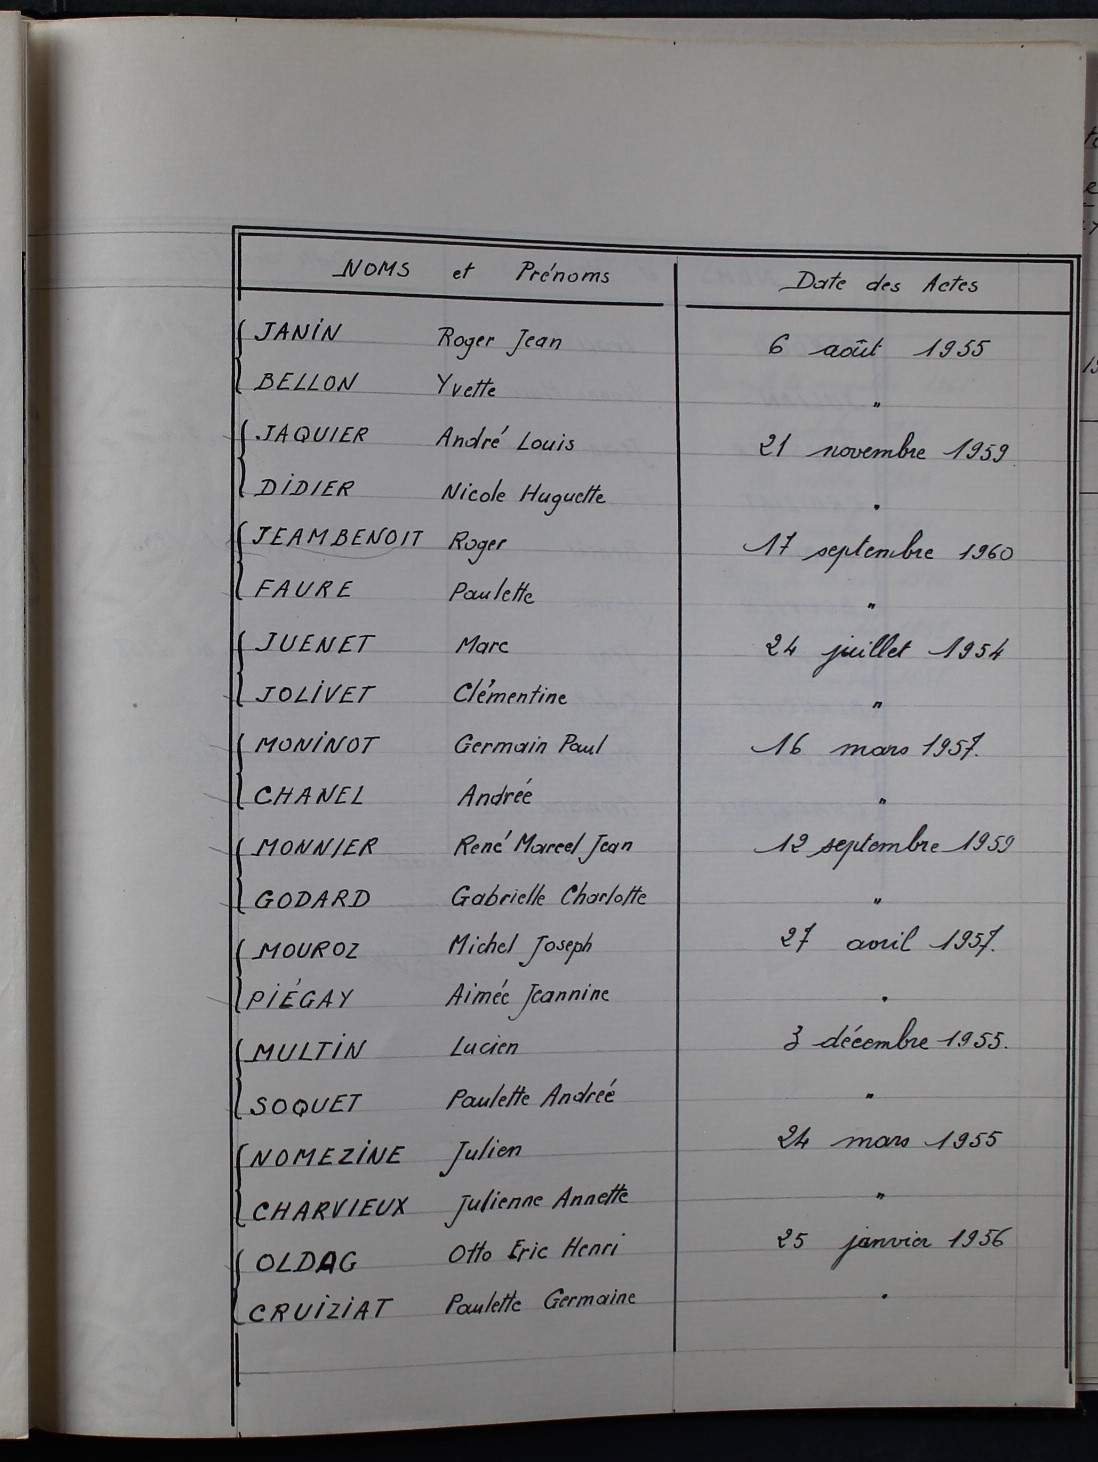 NOMS et Prénoms Date des Actes
JANIN Roger Jean 6 août 1955
BELLON Yvette "
JAQUIER André Louis 21 novembre 1959
DIDIER Nicole Huguette "
JEAMBENOIT Roger 17 septembre 1960
FAURE Paulette "
JUENET Marc 24 juillet 1954
JOLIVET Clémentine "
MONINOT Germain Paul 16 mars 1957.
CHANEL Andrée "
MONNIER René Marcel Jean 12 septembre 1959
GODARD Gabrielle Charlotte "
MOUROZ Michel Joseph 27 avril 1957.
PIÉGAY Aimée Jeannine "
MULTIN Lucien 3 décembre 1955.
SOQUET Paulette Andrée "
NOMEZINE Julien 24 mars 1955
CHARVIEUX Julienne Annette "
OLDAG Otto Eric Henri 25 janvier 1956
CRUIZIAT Paulette Germaine "